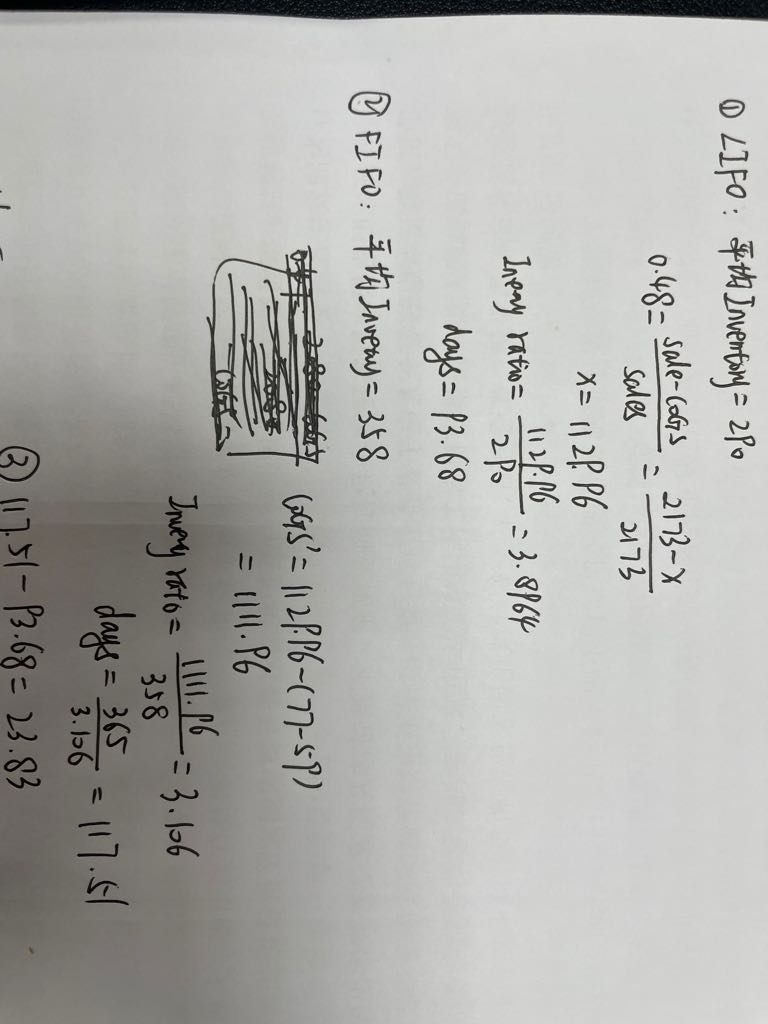 ① LIFO: 平均Inventory = 290
0.48 = (sale-COGS)/sales = (2173-x)/2173
x = 1129.96
Inveny ratio = 1129.96/290 = 3.8964
days = 93.68
② FIFO: 平均Inveny = 358
COGS' = 1129.96-(77-59)
= 1111.96
Inveny ratio = 1111.96/358 = 3.106
days = 365/3.106 = 117.51
③ 117.51 - 93.68 = 23.83